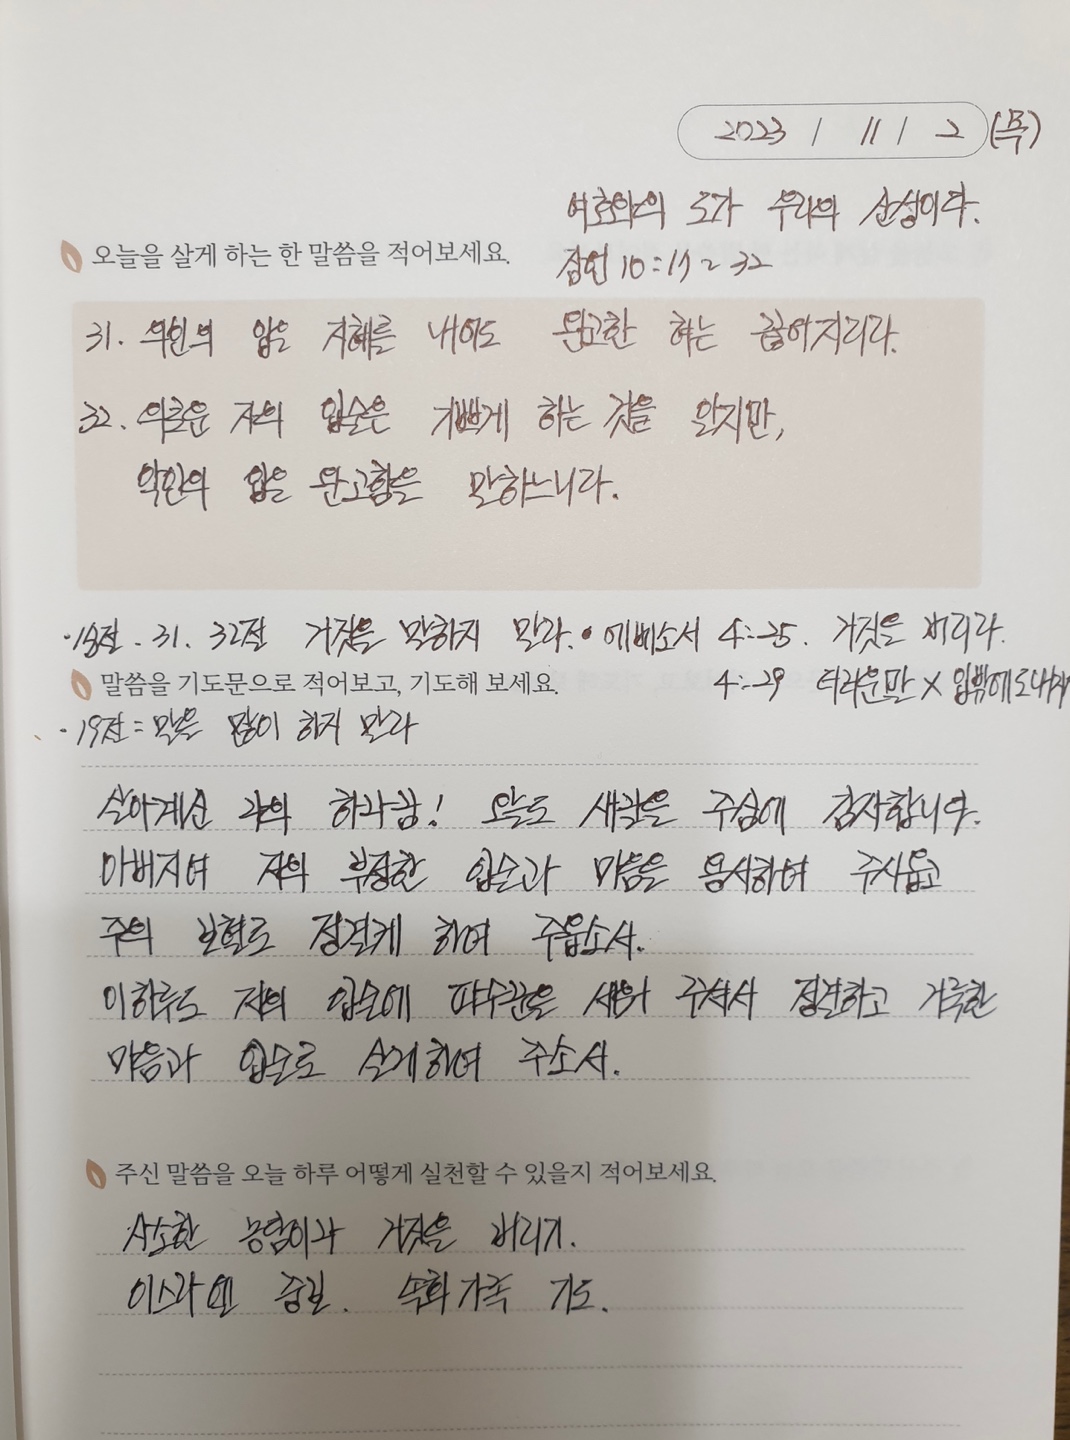 2023 / 11 / 2 (목)
여호와의 도가 우리의 산성이다.
오늘을 살게 하는 한 말씀을 적어보세요.
잠언 10:17~32
31. 의인의 입은 지혜를 내어도 패역한 혀는 끊어지리라.
32. 의로운 자의 입술은 기쁘게 하는 것을 알지만,
악인의 입은 패역함을 말하느니라.
·18절. 31. 32절 거짓을 말하지 말라. • 에베소서 4:25. 거짓을 버리라.
말씀을 기도문으로 적어보고, 기도해 보세요.
4:29 더러운말 X 입밖에도내지
·19절 = 말을 많이 하지 말라
살아계신 나의 하나님! 오늘도 새날을 주심에 감사합니다.
아버지여 저의 부정한 입술과 마음을 용서하여 주시옵고
주의 보혈로 정결케 하여 주옵소서.
이하루도 저의 입술에 파수꾼을 세워 주셔서 정결하고 거룩한
마음과 입술로 살게하여 주소서.
주신 말씀을 오늘 하루 어떻게 실천할 수 있을지 적어보세요.
사소한 농담이라 거짓을 버리기.
이스라엘 중보. 수화가족 기도.